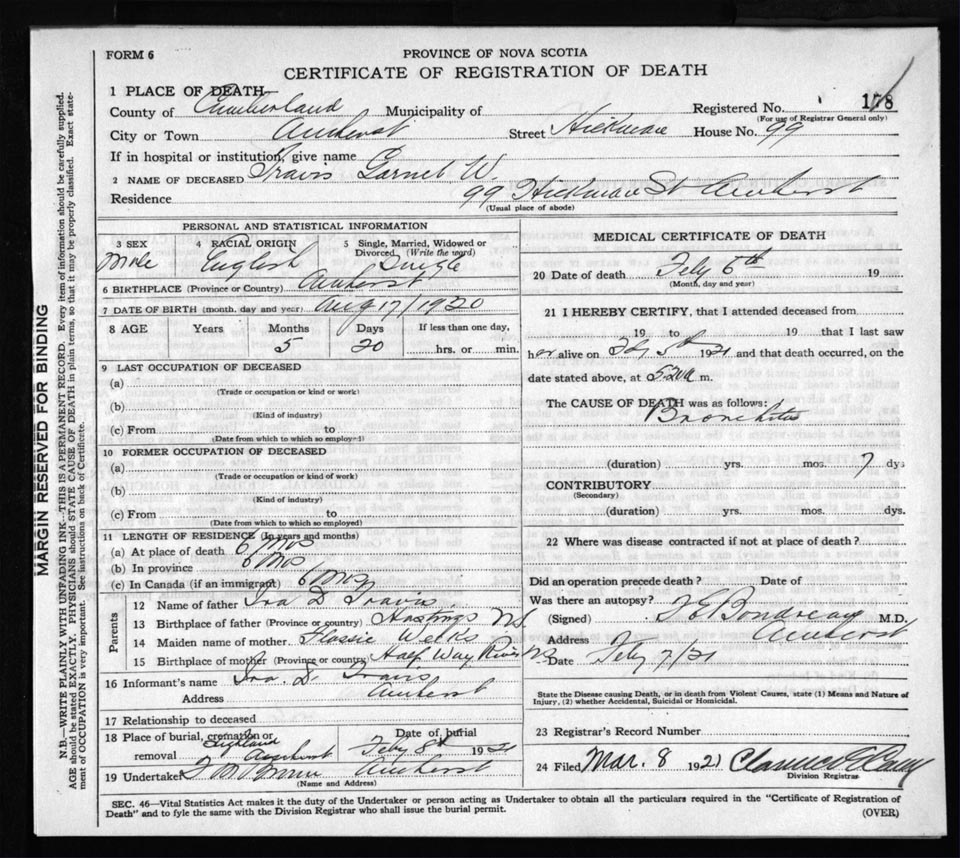 FORM 6
PROVINCE OF NOVA SCOTIA
CERTIFICATE OF REGISTRATION OF DEATH
1 PLACE OF DEATH
County of Cumberland Municipality of Registered No. 178
(For use of Registrar General only)
City or Town Amherst Street Hickman House No. 99
If in hospital or institution, give name
2 NAME OF DECEASED Travis Garnet W.
Residence 99 Hickman St Amherst
(Usual place of abode)
PERSONAL AND STATISTICAL INFORMATION
3 SEX Male
4 RACIAL ORIGIN English
5 Single, Married, Widowed or Divorced (Write the word) Single
6 BIRTHPLACE (Province or Country) Amherst
7 DATE OF BIRTH (month, day and year) Aug 17/1920
8 AGE Years Months Days If less than one day,
5 20 hrs. or min.
9 LAST OCCUPATION OF DECEASED
(a)
(Trade or occupation or kind of work)
(b)
(Kind of industry)
(c) From to
(Date from which to which so employed)
10 FORMER OCCUPATION OF DECEASED
(a)
(Trade or occupation or kind of work)
(b)
(Kind of industry)
(c) From to
(Date from which to which so employed)
11 LENGTH OF RESIDENCE (In years and months)
(a) At place of death 6 Mos
(b) In province 6 Mos
(c) In Canada (if an immigrant) 6 Mos
Parents
12 Name of father Ira D Travis
13 Birthplace of father (Province or country) Hastings N.S.
14 Maiden name of mother Flossie Wells
15 Birthplace of mother (Province or country) Half Way River NS
16 Informant's name Ira. D. Travis
Address Amherst
17 Relationship to deceased
18 Place of burial, cremation or removal Highland Amherst
Date of burial Feby 8th 1921
19 Undertaker Amherst
(Name and Address)
MEDICAL CERTIFICATE OF DEATH
20 Date of death Feby 6th 19
(Month, day and year)
21 I HEREBY CERTIFY, that I attended deceased from
19 to 19 that I last saw
her alive on Feby 5th 1921 and that death occurred, on the
date stated above, at m.
The CAUSE OF DEATH was as follows:
Bronchitis
(duration) yrs. mos. 7 dys
CONTRIBUTORY
(Secondary)
(duration) yrs. mos. dys.
22 Where was disease contracted if not at place of death?
Did an operation precede death? Date of
Was there an autopsy?
(Signed) Bondreau M.D.
Address Amherst
Date Feby 7/21
State the Disease causing Death, or in death from Violent Causes, state (1) Means and Nature of
Injury, (2) whether Accidental, Suicidal or Homicidal.
23 Registrar's Record Number
24 Filed Mar. 8 1921 Clarence
Division Registrar
SEC. 46—Vital Statistics Act makes it the duty of the Undertaker or person acting as Undertaker to obtain all the particulars required in the "Certificate of Registration of
Death" and to fyle the same with the Division Registrar who shall issue the burial permit.
(OVER)
MARGIN RESERVED FOR BINDING
N.B.—WRITE PLAINLY WITH UNFADING INK—THIS IS A PERMANENT RECORD. Every item of information should be carefully supplied.
AGE should be stated EXACTLY. PHYSICIANS should STATE CAUSE OF DEATH in plain terms, so that it may be properly classified. Exact state-
ment of OCCUPATION is very important. See instructions on back of Certificate.